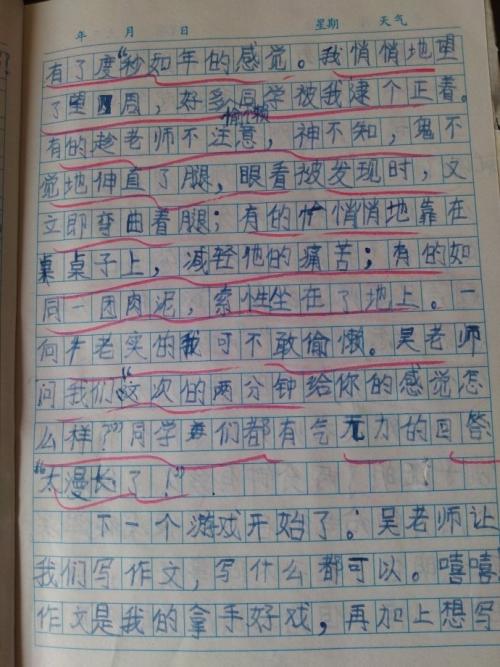 年 月 日 星期 天气
有了度“秒如年的感觉。我悄悄地望
了望四周，好多同学被我逮个正着。
偷个懒
有的趁老师不注意，神不知，鬼不
觉地伸直了腿，眼看被发现时，又
立即弯曲着腿；有的悄悄地靠在
桌子上，减轻他的痛苦；有的如
同一团肉泥，索性坐在了地上。一
向老实的我可不敢偷懒。吴老师
问我们“这次的两分钟给你的感觉怎
么样？”同学们都有气无力的回答
“太漫长了！”
下一个游戏开始了。吴老师让
我们写作文，写什么都可以。嘻嘻
作文是我的拿手好戏，再加上想写